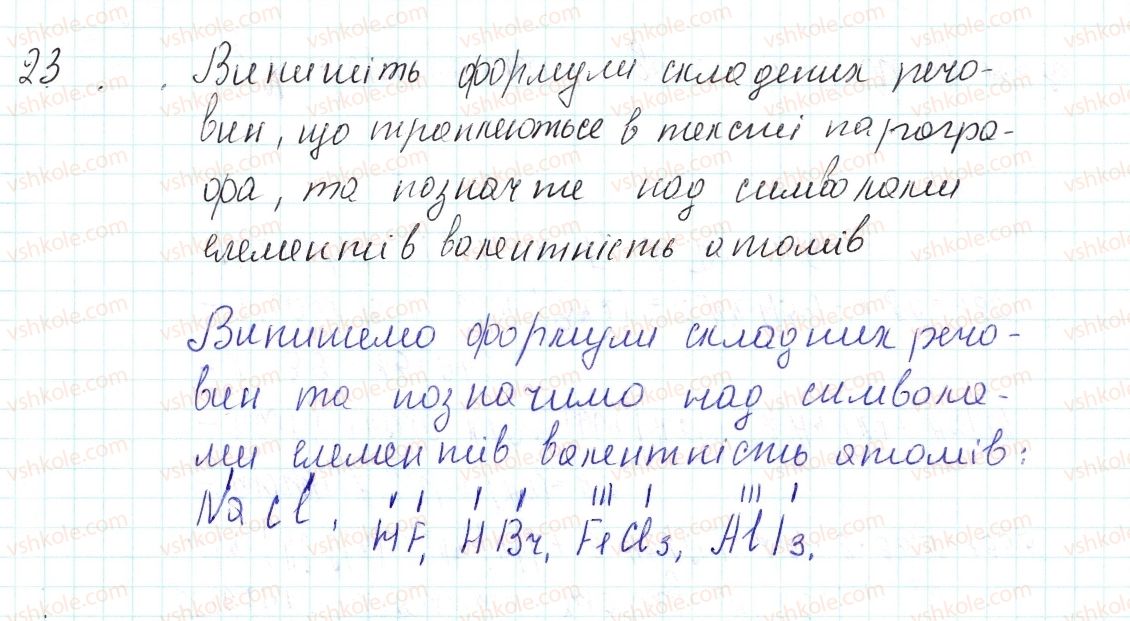 23. Випишіть формули складених речо-
вин, що трапляються в тексті парагра-
фа, та позначте над символами
елементів валентність атомів
Випишемо формули складних речо-
вин та позначимо над символа-
ми елементів валентність атомів:
I I I I I I III I III I
NaCl, HF, HBr, FeCl3, AlI3.